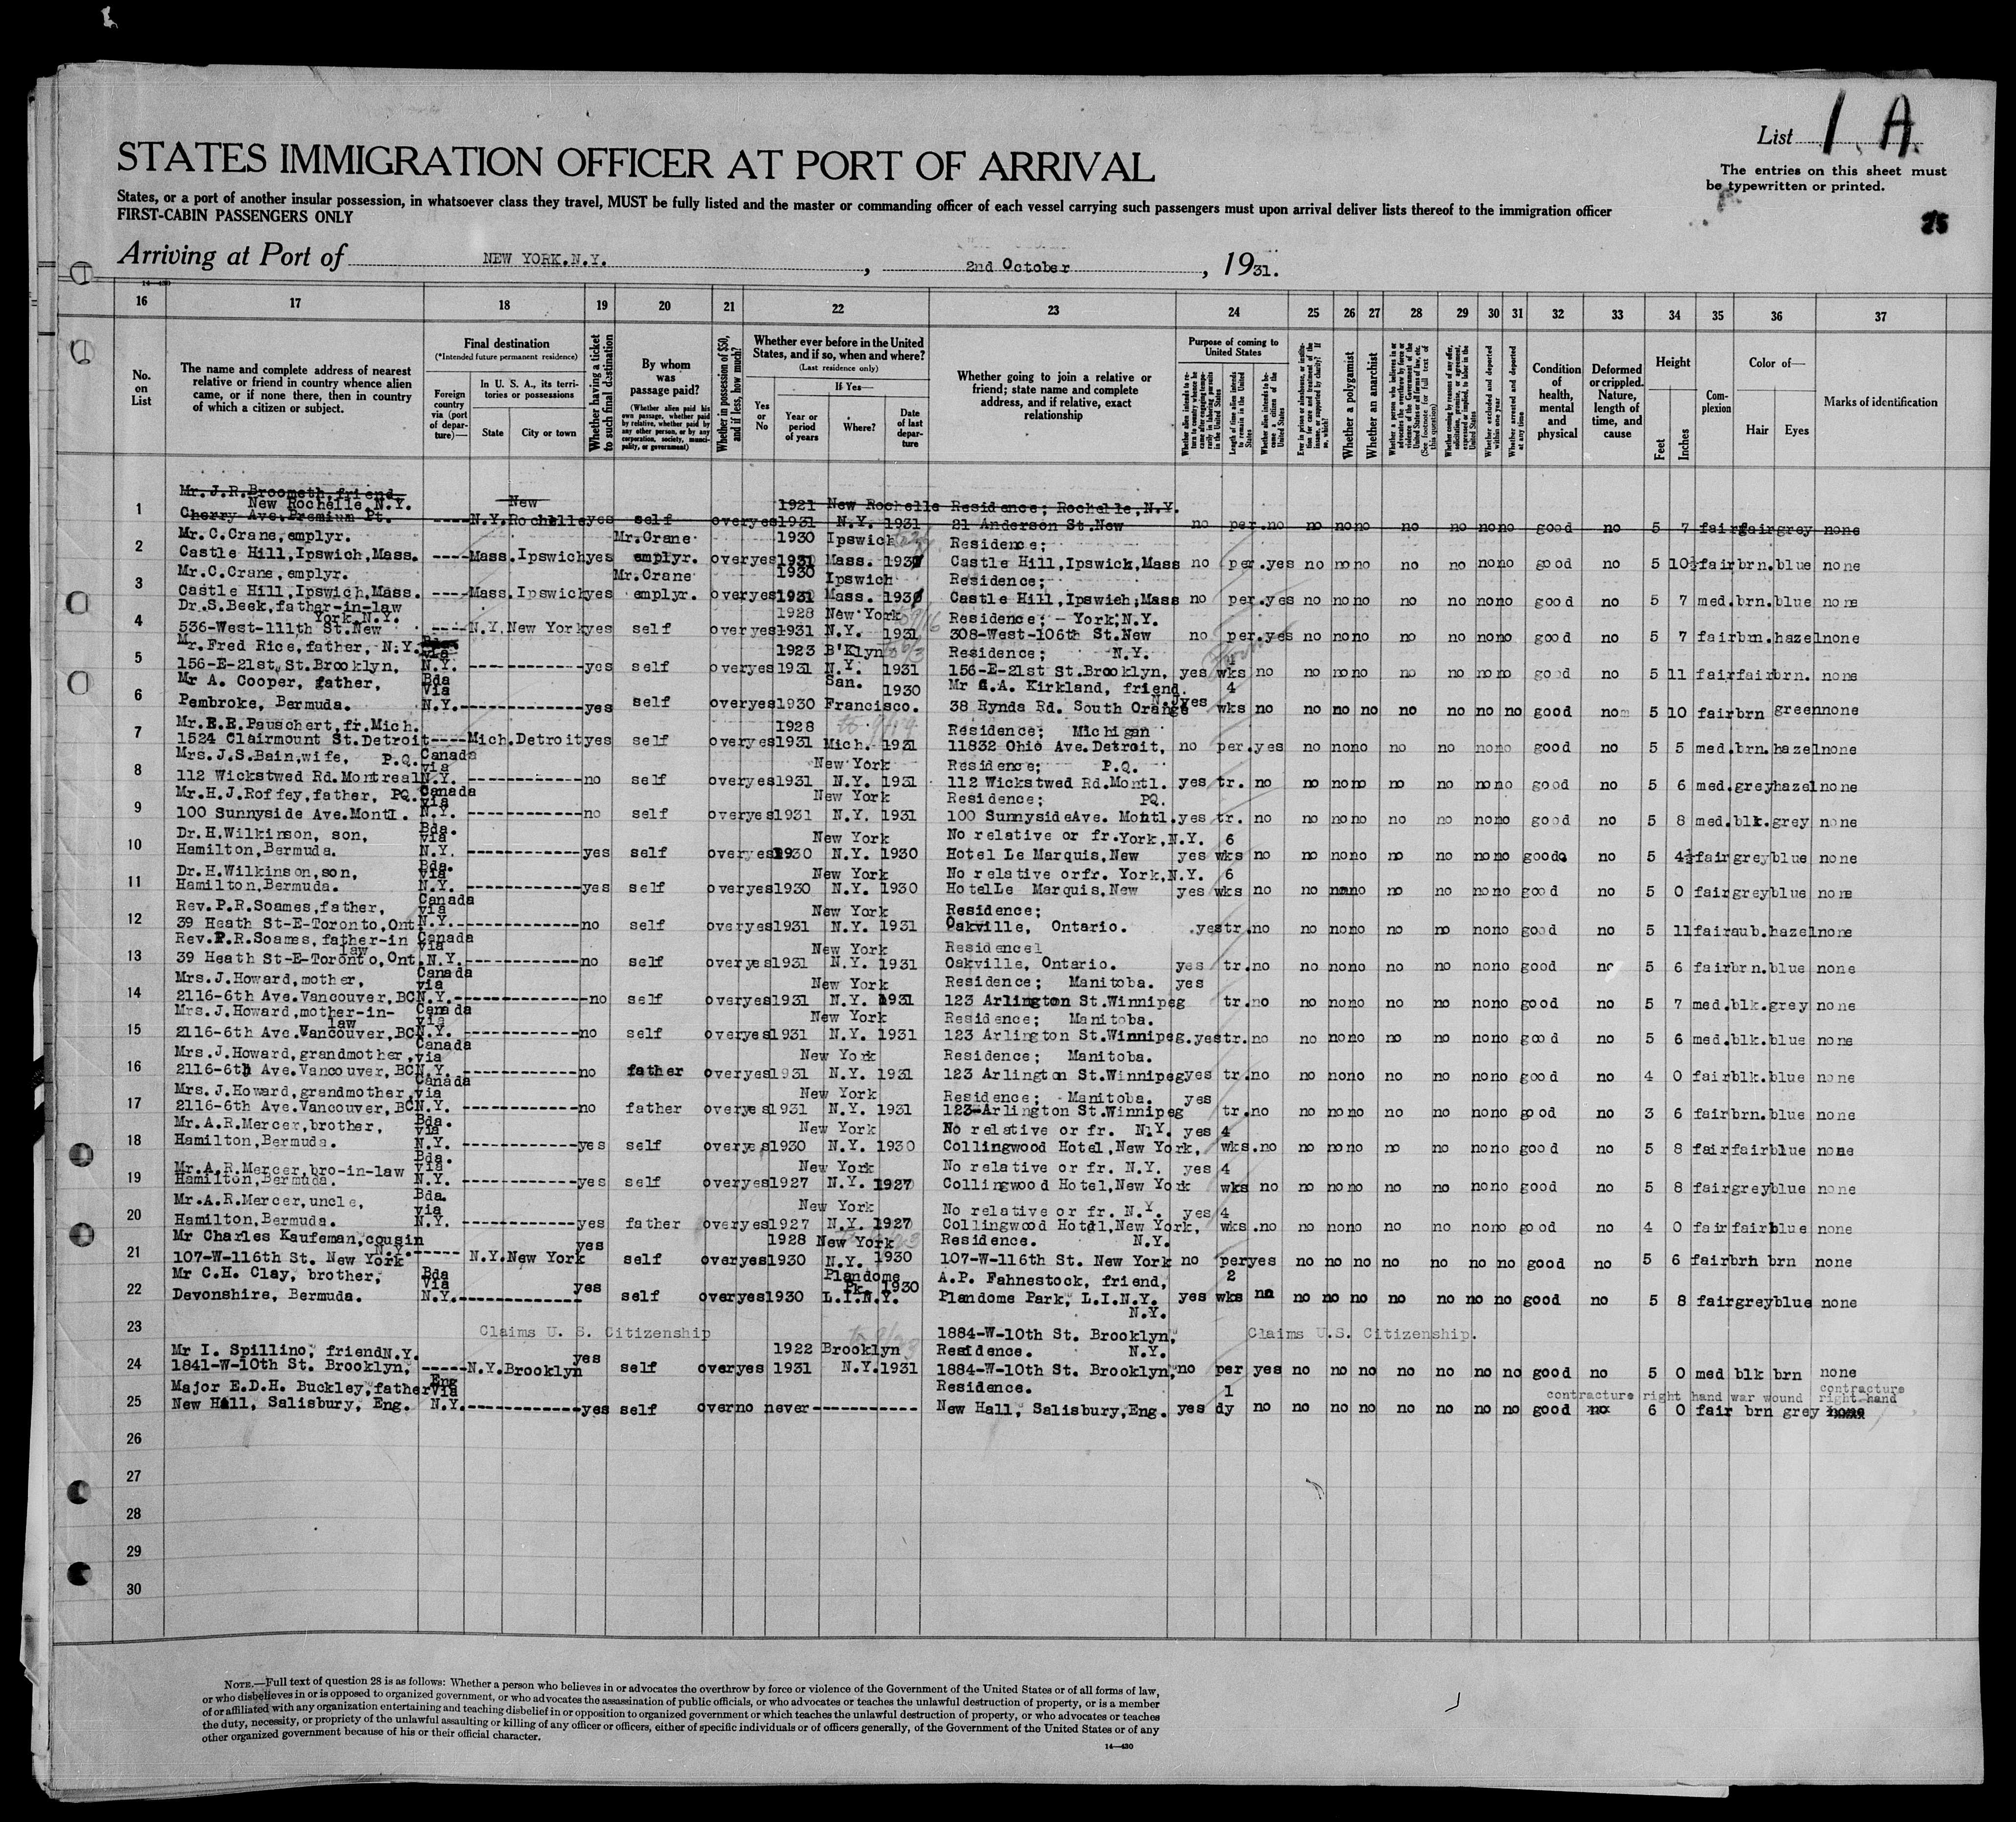 List 1 A
The entries on this sheet must
be typewritten or printed.
25
STATES IMMIGRATION OFFICER AT PORT OF ARRIVAL
States, or a port of another insular possession, in whatsoever class they travel, MUST be fully listed and the master or commanding officer of each vessel carrying such passengers must upon arrival deliver lists thereof to the immigration officer
FIRST-CABIN PASSENGERS ONLY
Arriving at Port of NEW YORK.N.Y. , 2nd October , 1931.
14—430
16 17 18 19 20 21 22 23 24 25 26 27 28 29 30 31 32 33 34 35 36 37
No. on List
The name and complete address of nearest relative or friend in country whence alien came, or if none there, then in country of which a citizen or subject.
Final destination
(*Intended future permanent residence)
Foreign country via (port of departure)—
In U. S. A., its territories or possessions
State City or town
Whether having a ticket to such final destination
By whom was passage paid?
(Whether alien paid his own passage, whether paid by relative, whether paid by any other person, or by any corporation, society, municipality, or government)
Whether in possession of $50, and if less, how much?
Whether ever before in the United States, and if so, when and where?
(Last residence only)
Yes or No
If Yes—
Year or period of years
Where?
Date of last departure
Whether going to join a relative or friend; state name and complete address, and if relative, exact relationship
Purpose of coming to United States
Whether alien intends to return to country whence he came after engaging temporarily in laboring pursuits in the United States
Length of time alien intends to remain in the United States
Whether alien intends to become a citizen of the United States
Ever in prison or almshouse, or institution for care and treatment of the insane, or supported by charity? If so, which?
Whether a polygamist
Whether an anarchist
Whether a person who believes in or advocates the overthrow by force or violence of the Government of the United States or all forms of law, etc. (See footnote for full text of this question)
Whether coming by reason of any offer, solicitation, promise, or agreement, expressed or implied, to labor in the United States
Whether excluded and deported within one year
Whether arrested and deported at any time
Condition of health, mental and physical
Deformed or crippled. Nature, length of time, and cause
Height
Feet Inches
Complexion
Color of—
Hair Eyes
Marks of identification
Mr.J.R.Broometh,friend, New 1921 New Rochelle Residence; Rochelle,N.Y.
New Rochelle N.Y.
1 Cherry Ave.Premium Pt. ----N.Y.Rochelle yes self over yes 1931 N.Y. 1931 21 Anderson St.New no per. no no no no no no no no good no 5 7 fair fair grey none
Mr.C.Crane,emplyr. Mr.Crane 1930 Ipswich Residence;
2 Castle Hill,Ipswich,Mass. ----Mass.Ipswich yes emplyr. over yes 1931 Mass. 1930 Castle Hill,Ipswick,Mass no per. yes no no no no no no no good no 5 10½ fair brn. blue none
Mr.C.Crane,emplyr. Mr.Crane 1930 Ipswich Residence;
3 Castle Hill,Ipswich,Mass. ----Mass.Ipswich yes emplyr. over yes 1931 Mass. 1930 Castle Hill,Ipswich,Mass no per. yes no no no no no no no good no 5 7 med. brn. blue none
Dr.S.Beek,father-in-law 1928 New York Residence; - York,N.Y.
York,N.Y.
4 536-West-111th St.New ----N.Y.New York yes self over yes 1931 N.Y. 1931 308-West-106th St.New no per. yes no no no no no no no good no 5 7 fair brn. hazel none
Mr.Fred Rice,father, N.Y. Bda via 1923 B'Klyn Residence; N.Y. 4
5 156-E-21st,St.Brooklyn, N.Y. ------------ yes self over yes 1931 N.Y. 1931 156-E-21st St.Brooklyn, yes wks no no no no no no no no good no 5 11 fair fair brn. none
Mr A. Cooper, father, Bda Via San. 1930 Mr G.A. Kirkland, friend. 4
6 Pembroke, Bermuda. N.Y. ------------ yes self over yes 1930 Francisco. 38 Rynda Rd. South Orange N.J yes wks no no no no no no no no good no 5 10 fair brn green none
Mr.E.E.Pauschert,fr.Mich. 1928 Residence; Michigan
7 1524 Clairmount St.Detroit ----Mich.Detroit yes self over yes 1931 Mich. 1931 11832 Ohio Ave.Detroit, no per. yes no no no no no no no good no 5 5 med. brn. hazel none
Mrs.J.S.Bain,wife, P.Q. Canada via New York Residence; P.Q.
8 112 Wickstwed Rd.Montreal N.Y. ------------ no self over yes 1931 N.Y. 1931 112 Wickstwed Rd.Montl. yes tr. no no no no no no no no good no 5 6 med. grey hazel none
Mr.H.J.Roffey,father, PQ. Canada via New York Residence; PQ.
9 100 Sunnyside Ave.Montl. N.Y. ------------ no self over yes 1931 N.Y. 1931 100 SunnysideAve. Montl. yes tr. no no no no no no no no good no 5 8 med. blk. grey none
Dr.H.Wilkinson, son, Bda. via New York No relative or fr.York,N.Y. 6
10 Hamilton,Bermuda. N.Y. ------------ yes self over yes 1930 N.Y. 1930 Hotel Le Marquis,New yes wks no no no no no no no no good no 5 4½ fair grey blue none
Dr.H.Wilkinson,son, Bda. via New York No relative orfr. York,N.Y. 6
11 Hamilton,Bermuda. N.Y. ------------ yes self over yes 1930 N.Y. 1930 HotelLe Marquis,New yes wks no no no no no no no no good no 5 0 fair grey blue none
Rev.P.R.Soames,father, Canada via New York Residence;
12 39 Heath St-E-Toronto,Ont. N.Y. ------------ no self over yes 1931 N.Y. 1931 Oakville, Ontario. yes tr. no no no no no no no no good no 5 11 fair aub. hazel none
Rev.P.R.Soames,father-in law Canada via New York Residencel
13 39 Heath St-E-Toronto,Ont. N.Y. ------------ no self over yes 1931 N.Y. 1931 Oakville, Ontario. yes tr. no no no no no no no no good no 5 6 fair brn. blue none
Mrs.J.Howard,mother, Canada via New York Residence; Manitoba. yes
14 2116-6th Ave.Vancouver,BC N.Y. ------------ no self over yes 1931 N.Y. 1931 123 Arlington St.Winnipeg tr. no no no no no no no no good no 5 7 med. blk. grey none
Mrs.J.Howard,mother-in-law Canada via New York Residence; Manitoba.
15 2116-6th Ave.Vancouver,BC N.Y. ------------ no self over yes 1931 N.Y. 1931 123 Arlington St.Winnipeg. yes tr. no no no no no no no no good no 5 6 med. blk. blue none
Mrs.J.Howard,grandmother, Canada via New York Residence; Manitoba.
16 2116-6th Ave.Vancouver,BC N.Y. ------------ no father over yes 1931 N.Y. 1931 123 Arlington St.Winnipeg yes tr. no no no no no no no no good no 4 0 fair blk. blue none
Mrs.J.Howard,grandmother, Canada via New York Residence; Manitoba. yes
17 2116-6th Ave.Vancouver,BC N.Y. ------------ no father over yes 1931 N.Y. 1931 123-Arlington St.Winnipeg tr. no no no no no no no no good no 3 6 fair brn. blue none
Mr.A.R.Mercer,brother, Bda. via New York No relative or fr. N.Y. yes 4
18 Hamilton,Bermuda. N.Y. ------------ yes self over yes 1930 N.Y. 1930 Collingwood Hotel,New York, wks. no no no no no no no no good no 5 8 fair fair blue none
Mr.A.R.Mercer,bro-in-law Bda. via New York No relative or fr. N.Y. yes 4
19 Hamilton,Bermuda. N.Y. ------------ yes self over yes 1927 N.Y. 1927 Collingwood Hotel,New York wks no no no no no no no no good no 5 8 fair grey blue none
Mr.A.R.Mercer,uncle, Bda. via New York No relative or fr. N.Y. yes 4
20 Hamilton,Bermuda. N.Y. ------------ yes father over yes 1927 N.Y. 1927 Collingwood Hotel,New York, wks. no no no no no no no no good no 4 0 fair fair blue none
Mr Charles Kaufeman,cousin N.Y. yes 1928 New York Residence. N.Y.
21 107-W-116th St. New York ----- N.Y.New York self over yes 1930 N.Y. 1930 107-W-116th St. New York no per yes no no no no no no no good no 5 6 fair brn brn none
Mr C.H. Clay, brother, Bda Via yes Plandome Pk. 1930 A.P. Fahnestock, friend, 2
22 Devonshire, Bermuda. N.Y. ------------ self over yes 1930 L.I.N.Y. Plandome Park, L.I.N.Y. yes wks no no no no no no no no good no 5 8 fair grey blue none
N.Y.
23 Claims U. S. Citizenship 1884-W-10th St. Brooklyn, Claims U.S. Citizenship.
Mr I. Spillino, friend N.Y. yes 1922 Brooklyn Residence. N.Y.
24 1841-W-10th St. Brooklyn, -----N.Y.Brooklyn self over yes 1931 N.Y. 1931 1884-W-10th St. Brooklyn, no per yes no no no no no no no good no 5 0 med blk brn none
Major E.D.H. Buckley,father Eng Via Residence. 1 contracture right hand war wound contracture right hand
25 New Hall, Salisbury, Eng. N.Y. ------------ yes self over no never ----------- New Hall, Salisbury,Eng. yes dy no no no no no no no no good no 6 0 fair brn grey none
26
27
28
29
30
NOTE.—Full text of question 28 is as follows: Whether a person who believes in or advocates the overthrow by force or violence of the Government of the United States or of all forms of law,
or who disbelieves in or is opposed to organized government, or who advocates the assassination of public officials, or who advocates or teaches the unlawful destruction of property, or is a member
of or affiliated with any organization entertaining and teaching disbelief in or opposition to organized government or which teaches the unlawful destruction of property, or who advocates or teaches
the duty, necessity, or propriety of the unlawful assaulting or killing of any officer or officers, either of specific individuals or of officers generally, of the Government of the United States or of any
other organized government because of his or their official character.
14—430